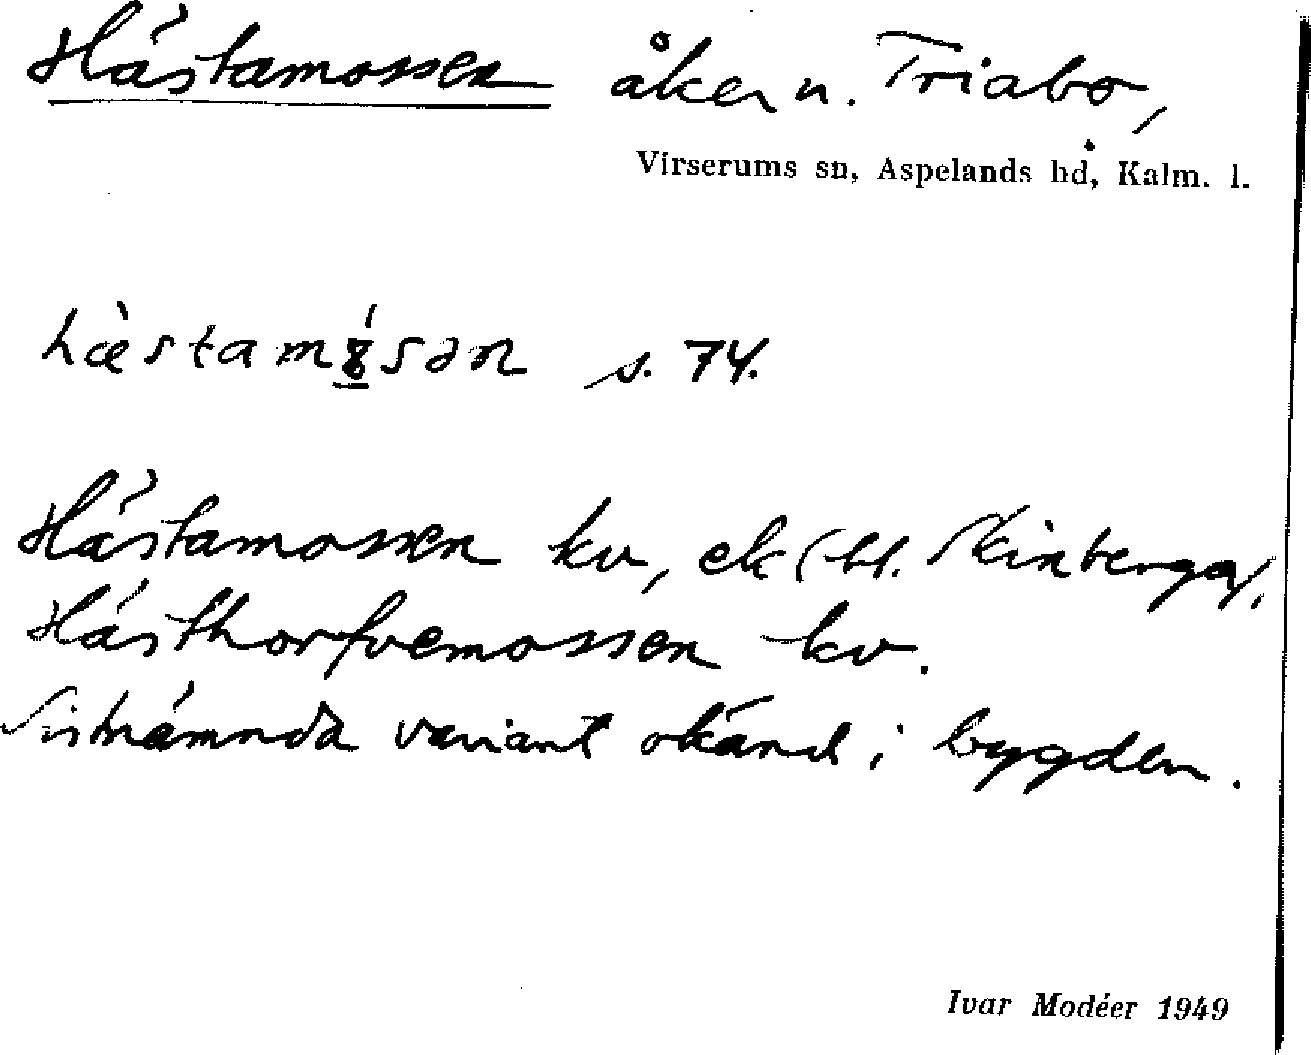 Hästamossen åker n. Triabo,
Virserums sn, Aspelands hd, Kalm. l.
s. 74.
Hästamossen kv, ek (bl. Skinberga).
Hästhorfvemossen kv.
Sistnämnda variant okänd i bygden.
Ivar Modéer 1949